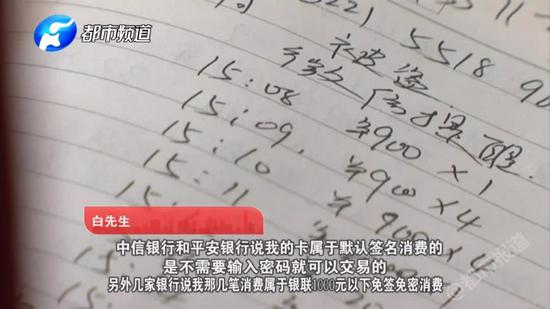 都市频道
5518 90
卡被盗
15:08 ¥900 ×1
15:09. ¥900 ×4
15:10 ¥900 ×4
15:11
白先生
中信银行和平安银行说我的卡属于默认签名消费的
是不需要输入密码就可以交易的
另外几家银行说我那几笔消费属于银联1000元以下免签免密消费
@都市报道